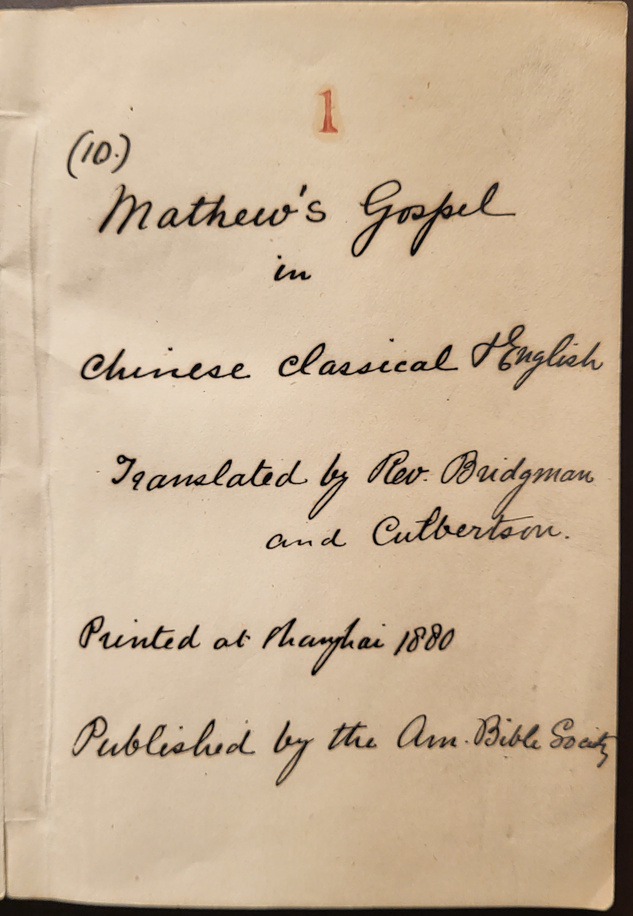 1
(10.)
Mathew's Gospel
in
Chinese Classical & English
Translated by Rev. Bridgman
and Culbertson.
Printed at Shanghai 1880
Published by the Am. Bible Society